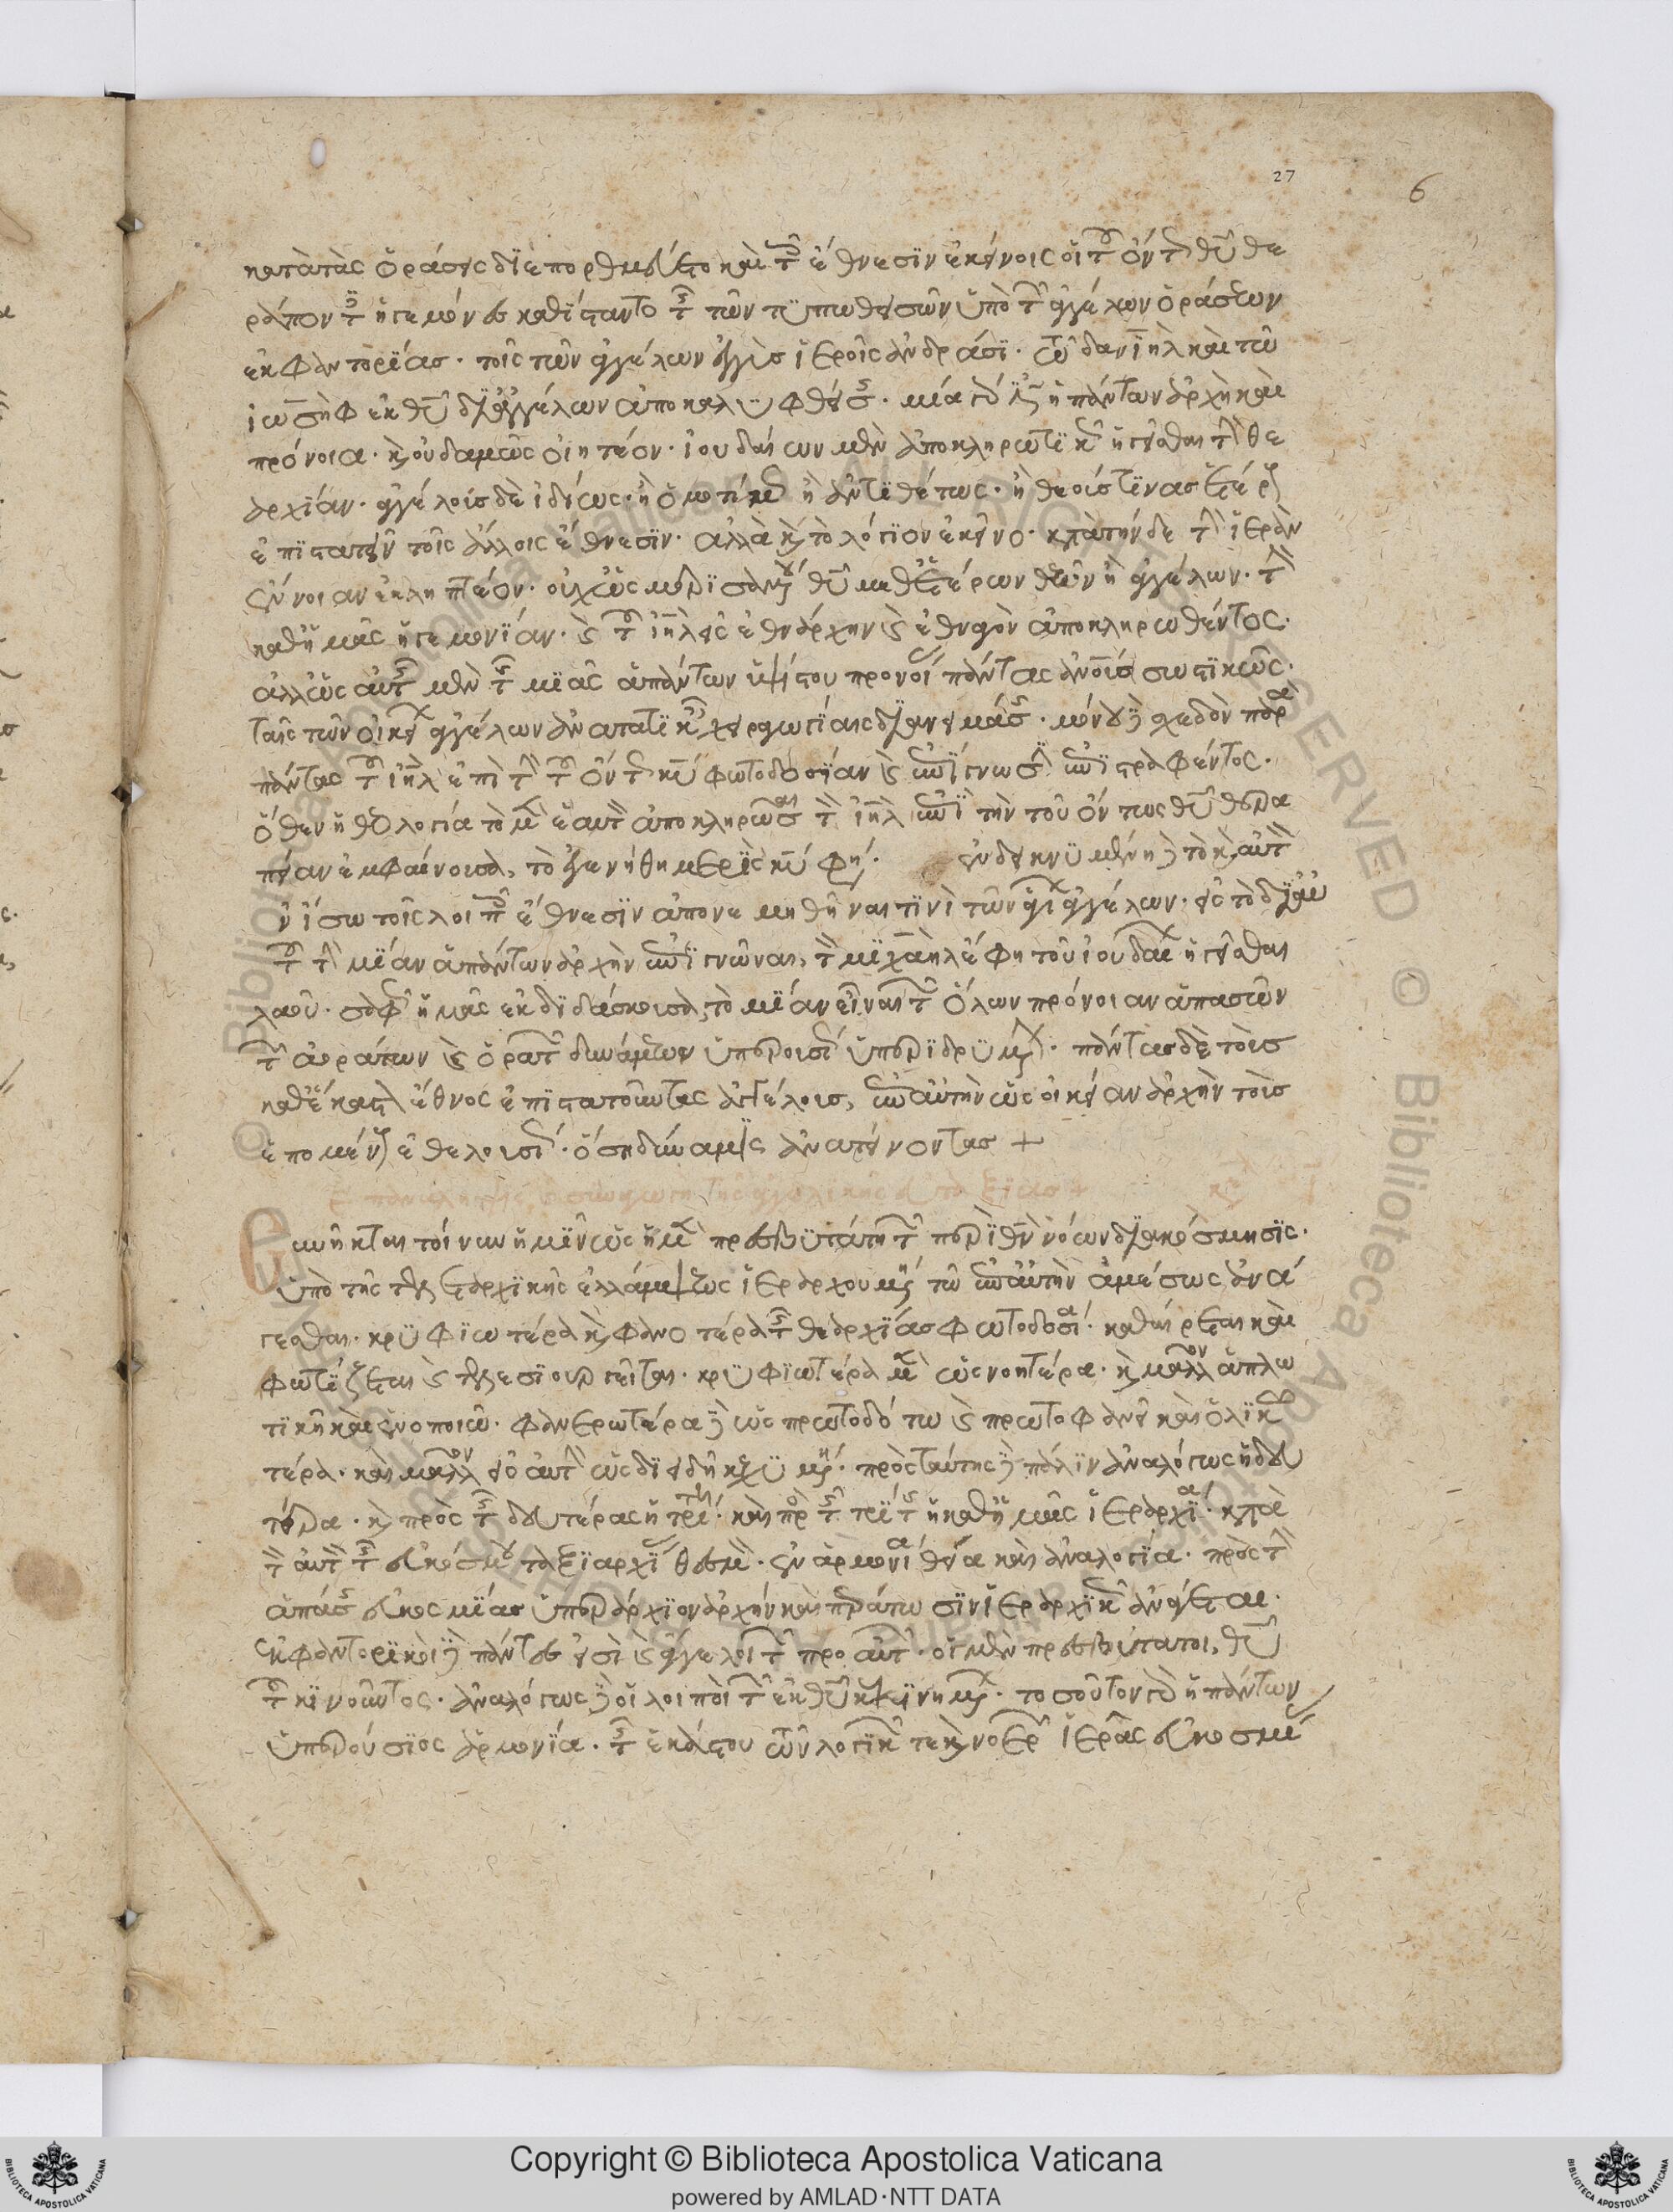 κατὰ τὰς ὁράσεις διεπορθμεύετο καὶ τοῖς ἔθνεσιν ἐκείνοις οἱ τοῦ ὄντως θυ θε
ράποντες ἡγεμόνες καθίσταντο τῆς τῶν τυπωθεισῶν ὑπὸ τῶν ἀγγέλων ὁράσεων
ἐκφαντορίας· τοῖς τῶν ἀγγέλων ἐγγὺς ἱεροῖς ἀνδράσι· τῷ δανιὴλ καὶ τῷ
ἰωσὴφ ἐκ θυ δι ἀγγέλων ἀποκαλυφθείσης· μία γάρ ἐστιν ἡ πάντων ἀρχὴ καὶ
πρόνοια· καὶ οὐδαμῶς οἰητέον· ἰουδαίων μὲν ἀποκληρωτικῶς ἡγεῖσθαι τὴν θε
αρχίαν· ἀγγέλοις δὲ ἰδίως· ἢ ὁμοτίμως ἢ ἀντιθέτως· ἢ θεοὺς τινας ἑτέρους
ἐπιστατεῖν τοῖς ἄλλοις ἔθνεσιν· ἀλλὰ καὶ τὸ λόγιον ἐκεῖνο· κατὰ τήνδε τὴν ἱερὰν
ἔννοιαν ἐκληπτέον· οὐχ ὡς μερισαμένου θυ μεθ ἑτέρων θεῶν ἢ ἀγγέλων· τὴν
καθ ἡμᾶς ἡγεμονίαν· καὶ τοῦ ιηλ εἰς ἐθνάρχην καὶ ἐθναγὸν ἀποκληρωθέντος·
ἀλλ ὡς αὐτῆς μὲν τῆς μιᾶς ἁπάντων ὑψίστου προνοίας πάντας ἀνους σωστικῶς·
ταῖς τῶν οἰκείων ἀγγέλων ἀναγωγικαῖς χειραγωγίαις διανειμάσης· μόνου δὲ σχεδὸν παρὰ
πάντας τοῦ ιηλ ἐπὶ τὴν τοῦ ὄντως κυ φωτοδοσίαν καὶ ἐπίγνωσιν ἐπιστραφέντος·
ὅθεν ἡ θεολογία τὸ μὲν ἑαυτὸν ἀποκληρῶσαι τὸν ιηλ ἐπὶ τὴν τοῦ ὄντως θυ θερα
πείαν ἐμφαίνουσα, τὸ ἐγενήθη μερὶς κυ φησί· ἐνδεικνυμένη δὲ τὸ καὶ αὐτὸν
ἐν ἴσῳ τοῖς λοιποῖς ἔθνεσιν ἀπονεμηθῆναι τινὶ τῶν ἁγίων ἀγγέλων· εἰς τὸ δι αὐ
τοῦ τὴν μίαν ἁπάντων ἀρχὴν ἐπιγνῶναι, τὸν μιχαὴλ ἔφη τοῦ ἰουδαίων ἡγεῖσθαι
λαοῦ· σαφῶς ἡμᾶς ἐκδιδάσκουσα, τὸ μίαν εἶναι τῶν ὅλων πρόνοιαν ἁπασῶν
τῶν ἀοράτων καὶ ὁρατῶν δυνάμεων ὑπερουσίως ὑπεριδρυμένην· πάντας δὲ τοὺς
καθ ἕκαστον ἔθνος ἐπιστατοῦντας ἀγγέλους, ἐπ αὐτὴν ὡς οἰκείαν ἀρχὴν τοὺς
ἑπομένους ἐθελουσίως· ὅση δύναμις ἀνατείνοντας +
ἐπανάληψις καὶ συναγωγὴ τῆς ἀγγελικῆς εὐταξίας +
Συνῆκται τοίνυν ἡμῖν ὡς ἡ μὲν πρεσβυτάτη τῶν περὶ θν νόων διακόσμησις·
ὑπὸ τῆς τελεταρχικῆς ἐλλάμψεως ἱεραρχουμένη τῷ ἐπ αὐτὴν ἀμέσως ἀνα
γεσθαι· κρυφιωτέρα καὶ φανοτέρα τῆς θεαρχίας φωτοδοσία· καθαίρεται καὶ
φωτίζεται καὶ τελεσιουργεῖται· κρυφιωτέρα μὲν ὡς νοητέρα· καὶ μᾶλλον ἁπλω
τικῇ καὶ ἑνοποιῷ· φανερωτέρα δὲ ὡς πρωτοδότῳ καὶ πρωτοφανεῖ καὶ ὁλικω
τέρα· καὶ μᾶλλον εἰς αὐτὴν ὡς διειδῆ κεχυμένη· πρὸς ταύτης δὲ πάλιν ἀναλόγως ἡ δευ
τέρα· καὶ πρὸς τῆς δευτέρας ἡ τρίτη· καὶ πρὸς τῆς τρίτης ἡ καθ ἡμᾶς ἱεραρχία· κατὰ
τὸν αὐτὸν τῆς εὐκόσμου ταξιαρχίας θεσμὸν· ἐν ἁρμονίᾳ θείᾳ καὶ ἀναλογίᾳ· πρὸς τὴν
ἁπάσης εὐκοσμίας ὑπεράρχιον ἀρχὴν καὶ περάτωσιν ἱεραρχικῶς ἀνάγεται·
Ἐκφαντορικοὶ δὲ πάντες εἰσὶ καὶ ἄγγελοι τῶν πρὸ αὐτῶν· οἱ μὲν πρεσβύτατοι, θυ
τοῦ κινοῦντος· ἀναλόγως δὲ οἱ λοιποὶ τῶν ἐκ θυ κεκινημένων· τοσοῦτον γὰρ ἡ πάντων
ὑπερούσιος ἁρμονία· τῆς ἑκάστου τῶν λογικῶν τε καὶ νοερῶν ἱερᾶς εὐκοσμίας